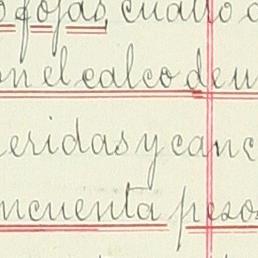 fojas, cuatro
el calco de
eridas y canc
ncuenta pesos